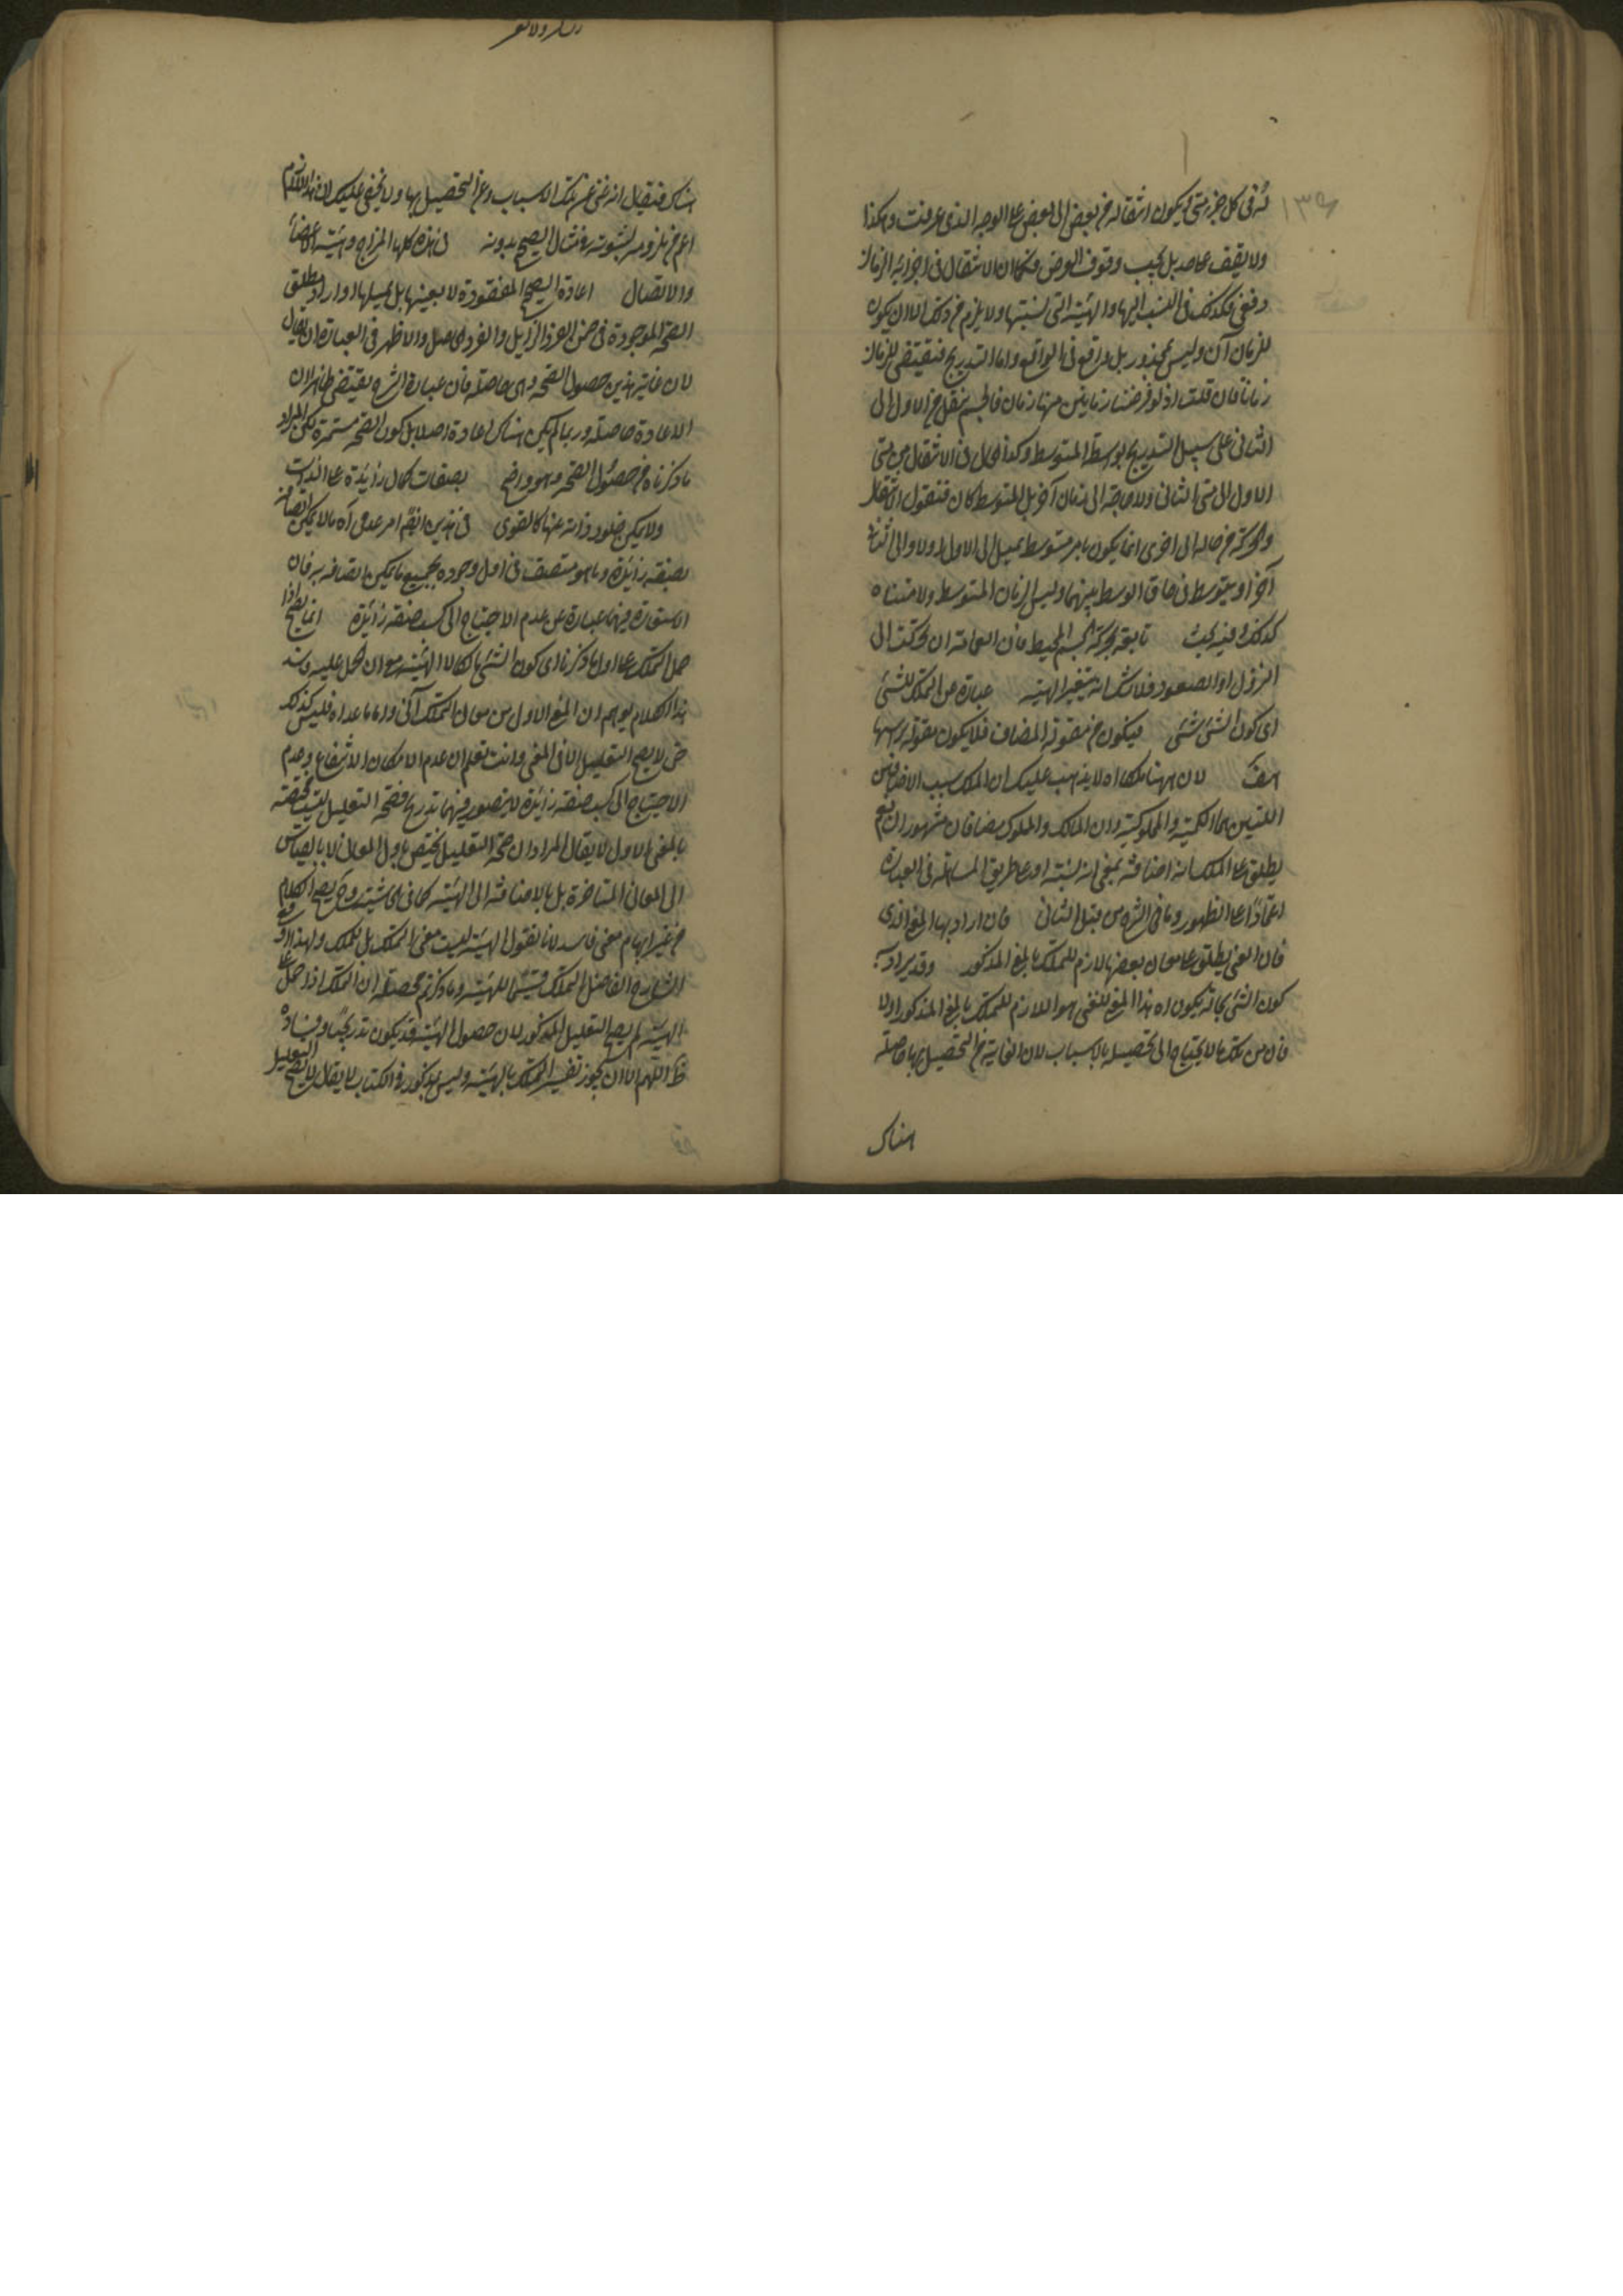 ١٣٩
ولا يقف على حد بل يجب وقوف العرض فكما ان الانتقال فى اجزائه الزمان
دفعى فكذلك فى النسب اليها والهيئة التى لنسبتها ولا يلزم من ذلك الا ان يكون
للزمان آن وليس بمحذور بل واقع فى الواقع واما التدريج فيقتضى للزمان
زمانا فان قلت اذ لو فرضنا زمانين بينهما زمان فالجسم ينتقل من الاول الى
الثانى على سبيل التدريج بواسطة المتوسط وكذا الحال فى الانتقال من متى
الاول الى متى الثانى ولا حاجة الى زمان آخر بل المتوسط كان فنقول الانتقال
والحركة من حالة الى اخرى انما يكون بامر متوسط يميل الى الاول اولا والى الثانى
آخرا ويتوسط فى حاق الوسط بينهما وليس الزمان المتوسط ولا متناه
كذلك وفيه بحث تابعة لحركة الجسم المحيط فان العمامة ان تحركت الى
النزول او الصعود فلا شك انه يتغير الهيئة عبارة عن التملك للشئ
اى كون الشئ لشئ فيكون من مقولة المضاف فلا يكون مقولة برأسها
لان ههنا ملكا اه لا يذهب عليك ان الملك سبب الاضافتين
اللتين هما المالكية والمملوكية وان المالك والمملوك مضافان مشهوران نعم
يطلق على الملك انه اضافة بمعنى انه نسبة او على طريق المساهلة فى العبارة
اعتمادا على الظهور وما فى الشرح من قبيل الثانى فان اراد بها المعنى الذى
فان المعنى يطلق على معان بعضها لازم للتملك بالمعنى المذكور وقد يراد به
كون الشئ بحالة يكون اه هذا المعنى للغنى هو اللازم للتملك بالمعنى المذكور اولا
فان من تملك مالا يحتاج الى تحصيله بالاسباب لان الغاية من التحصيل بها حاصلة
هناك
هناك فيقال انه غنى عن تلك الاسباب وعن التحصيل بها ولا يخفى عليك ان هذا اللازم
اعم من ملزومه لثبوته فى مثال الصحة بدونه فى هذه كلها المزاج وهيئة الاعضاء
والاتصال اعادة الصحة المفقودة لا بعينها بل بمثلها او اراد مطلق
الصحة الموجودة فى ضمن الفرد الزايل والفرد الحاصل والاظهر فى العبارة ان يقال
لان غاية هذين حصول الصحة وهى حاصلة فان عبارة الشرح يقتضى ظاهرا ان
الاعادة حاصلة وربما لم يكن هناك اعادة اصلا بل كون الصحة مستمرة لكن المراد
ما ذكرناه من حصول الصحة وهو واضح بصفات كمال زايدة على الذات
ولا يمكن خلو ذاته عنها كالقوى فى هذين القسم امر عدمى اه مالا يمكن اتصافه
بصفة زايدة وما هو متصف فى اول وجوده بجميع ما يمكن اتصافه به فان
الاستعارة فيهما عبارة عن عدم الاحتياج الى كسب صفة زايدة انما يصح اذا
حمل التملك على اول ما ذكرناه اى كون الشئ مالكا لا الهيئة مع ان يحمل عليه وسند
هذا الكلام يوهم ان المعنى الاول من معان التملك آنى واما ما عداه فليس كذلك
حتى لا يصح التعليل الا فى المعنى وانت تعلم ان عدم الامكان الانتفاع وعدم
الاحتياج الى كسب صفة زايدة لا يتصور فيهما تدريج فصحة التعليل ليست مختصة
بالمعنى الاول لا يقال المراد ان صحة التعليل يختص باول المعان لا بالقياس
الى المعانى المتأخرة بل بالاضافة الى الهيئة كما فى الحاشية وح يصح الكلام
من غير ايهام معنى فاسد لانا نقول الهيئة ليست معنى التملك بل للملك ولهذا
الشارح الفاضل التملك قسيما للهيئة وما ذكرتم محصله ان التملك اذا حمل على
الهيئة لم يصح التعليل المذكور لان حصول الهيئة قد يكون تدريجيا وفساده
ظ اللهم الا ان يجوز تفسير التملك بالهيئة وليس بمذكور فى الكتاب لا يقال لا يصح التعليل